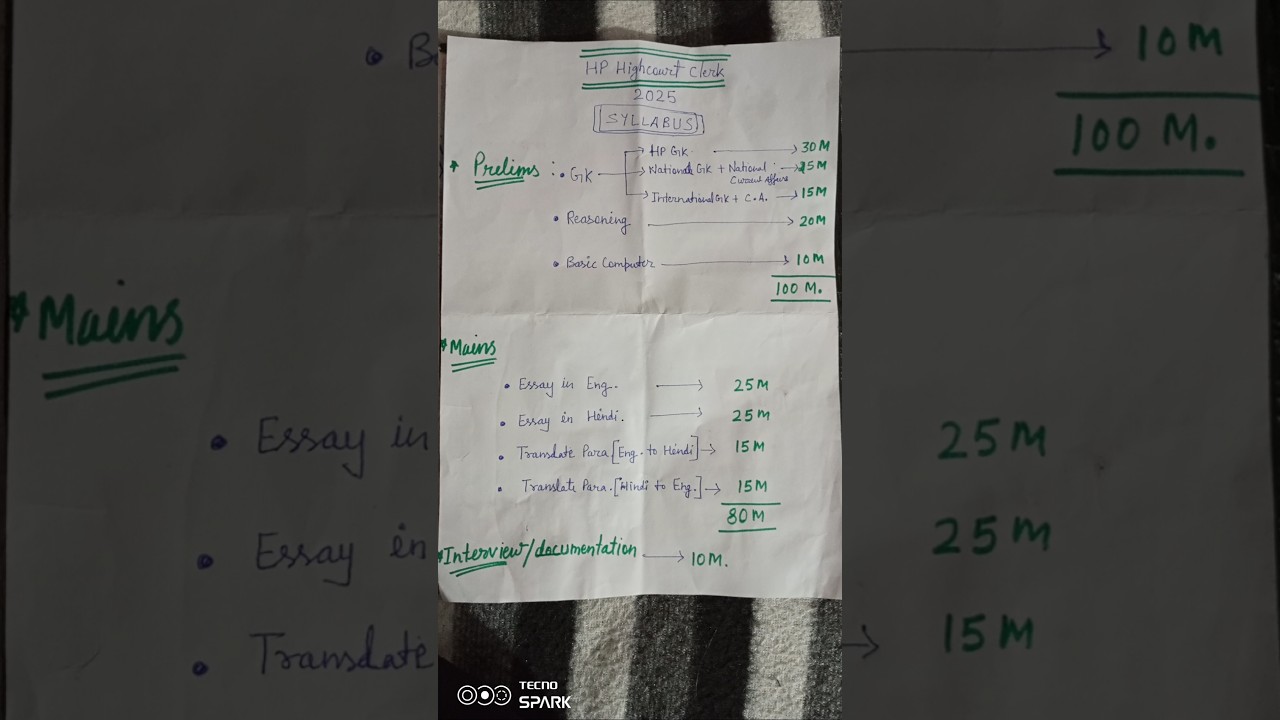 HP Highcourt Clerk
2025
SYLLABUS
* Prelims : • GK → HP GK → 30M
→ National GK + National Current Affairs → 25M
→ International GK + C.A. → 15M
• Reasoning → 20M
• Basic Computer → 10M
100 M.
* Mains
• Essay in Eng. → 25M
• Essay in Hindi. → 25M
• Translate Para. [Eng. to Hindi] → 15M
• Translate Para. [Hindi to Eng.] → 15M
80M
* Interview/documentation → 10M.
TECNO
SPARK